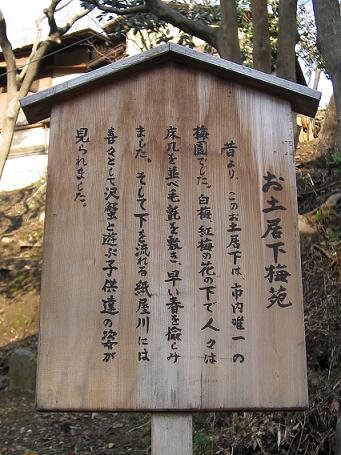 お土居下梅苑
昔より、このお土居下は、市内唯一の
梅園でした。白梅、紅梅の花の下で人々は
床几を並べ毛氈を敷き、早い春を愉しみ
ました。そして下を流れる紙屋川には
喜々として沢蟹と遊ぶ子供達の姿が
見られました。